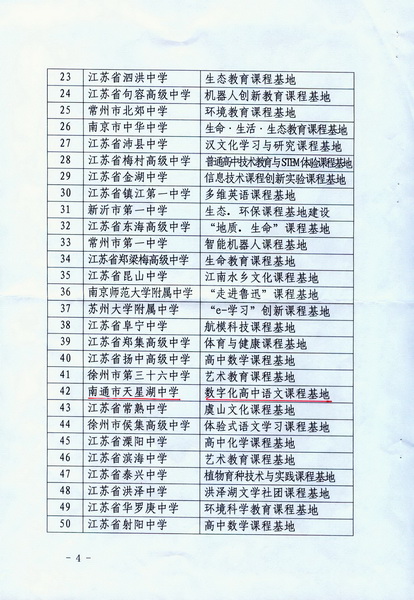 23 江苏省泗洪中学 生态教育课程基地
24 江苏省句容高级中学 机器人创新教育课程基地
25 常州市北郊中学 环境教育课程基地
26 南京市中华中学 生命·生活·生态教育课程基地
27 江苏省沛县中学 汉文化学习与研究课程基地
28 江苏省梅村高级中学 普通高中技术教育与STEM体验课程基地
29 江苏省金湖中学 信息技术课程创新实验课程基地
30 江苏省镇江第一中学 多维英语课程基地
31 新沂市第一中学 生态．环保课程基地建设
32 江苏省东海高级中学 “地质．生命”课程基地
33 常州市第一中学 智能机器人课程基地
34 江苏省郑梁梅高级中学 生命教育课程基地
35 江苏省昆山中学 江南水乡文化课程基地
36 南京师范大学附属中学 “走进鲁迅”课程基地
37 苏州大学附属中学 “e-学习”创新课程基地
38 江苏省阜宁中学 航模科技课程基地
39 江苏省郑集高级中学 体育与健康课程基地
40 江苏省扬中高级中学 高中数学课程基地
41 徐州市第三十六中学 艺术教育课程基地
42 南通市天星湖中学 数字化高中语文课程基地
43 江苏省常熟中学 虞山文化课程基地
44 徐州市侯集高级中学 体验式语文学习课程基地
45 江苏省溧阳中学 高中化学课程基地
46 江苏省滨海中学 艺术教育课程基地
47 江苏省泰兴中学 植物育种技术与实践课程基地
48 江苏省洪泽中学 洪泽湖文学社团课程基地
49 江苏省华罗庚中学 环境科学教育课程基地
50 江苏省射阳中学 高中数学课程基地
- 4 -